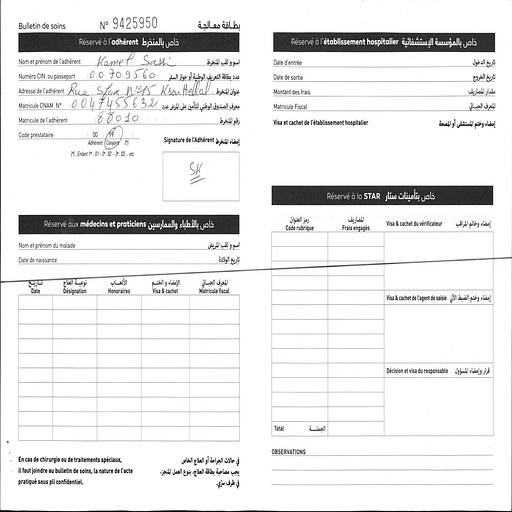 Bulletin de soins N° 9425950 بطاقة معالجة
Réservé à l'adhérent خاص بالمنخرط
Nom et prénom de l'adhérent Kamel Sassi اسم و لقب المنخرط
Numéro CIN ou passeport 00709560 عدد بطاقة التعريف الوطنية أو جواز السفر
Adresse de l'adhérent Rue Sfax N°15 Ksar Hellal عنوان المنخرط
Matricule CNAM N° 0047455632 معرف الصندوق الوطني للتأمين على المرض عدد
Matricule de l'adhérent 88010 رقم المنخرط
Code prestataire 00 99
Adhérent Conjoint (*)
(*) : Enfant 1er : 01 - 2è : 02 - 3è : 03 ... etc
Signature de l'Adhérent إمضاء المنخرط
Réservé aux médecins et praticiens خاص بالأطباء والممارسين
Nom et prénom du malade اسم و لقب المريض
Date de naissance تاريخ الولادة
تاريخ نوعية العلاج الأتعاب الإمضاء و الختم المعرف الجبائي
Date Désignation Honoraires Visa & cachet Matricule fiscal
En cas de chirurgie ou de traitements spéciaux,
il faut joindre au bulletin de soins, la nature de l'acte
pratiqué sous pli confidentiel.
في حالات الجراحة أو العلاج الخاص
يجب مصاحبة بطاقة العلاج، بنوع العمل المنجز،
في ظرف سري.
Réservé à l'établissement hospitalier خاص بالمؤسسة الإستشفائية
Date d'entrée تاريخ الدخول
Date de sortie تاريخ الخروج
Montant des frais مقدار المصاريف
Matricule Fiscal المعرف الجبائي
Visa et cachet de l'établissement hospitalier إمضاء وختم المستشفى أو المصحة
Réservé à la STAR خاص بتأمينات ستار
رمز العنوان المصاريف
Code rubrique Frais engagés
Visa & cachet du vérificateur إمضاء وخاتم المراقب
Visa & cachet de l'agent de saisie إمضاء وختم الضبط الآلي
Décision et visa du responsable قرار وإمضاء المسؤول
Total الجملة
OBSERVATIONS